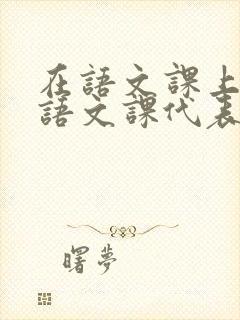 在語文課上
語文課代表
曙夢